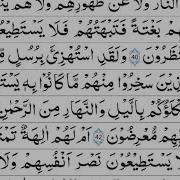 النَّارَ وَلَا عَن ظُهُورِهِمْ وَلَا هُمْ يُن
هِم بَغْتَةً فَتَبْهَتُهُمْ فَلَا يَسْتَطِيعُو
نظَرُونَ ۝٤٠ وَلَقَدِ اسْتُهْزِئَ بِرُسُلٍ مِّ
ذِينَ سَخِرُوا مِنْهُم مَّا كَانُوا بِهِ يَسْتَ
كْلَؤُكُم بِاللَّيْلِ وَالنَّهَارِ مِنَ الرَّحْمَٰنِ
بِّهِم مُّعْرِضُونَ ۝٤٢ أَمْ لَهُمْ آلِهَةٌ تَمْنَ
لَا يَسْتَطِيعُونَ نَصْرَ أَنفُسِهِمْ وَلَا